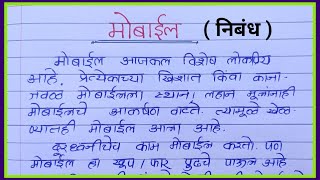 मोबाईल ( निबंध )
मोबाईल आजकाल विशेष लोकप्रिय
आहे. प्रत्येकाच्या खिशात किंवा काना-
जवळ मोबाईलला स्थान। लहान मुलांनाही
मोबाईलचे आकर्षण वाटते. त्यामूळे खेळ-
ण्यातही मोबाईल आला आहे.
दूरध्वनीचेच काम मोबाईल करतो. पण
मोबाईल हा खूप। फार पुढचे पाऊल आहे